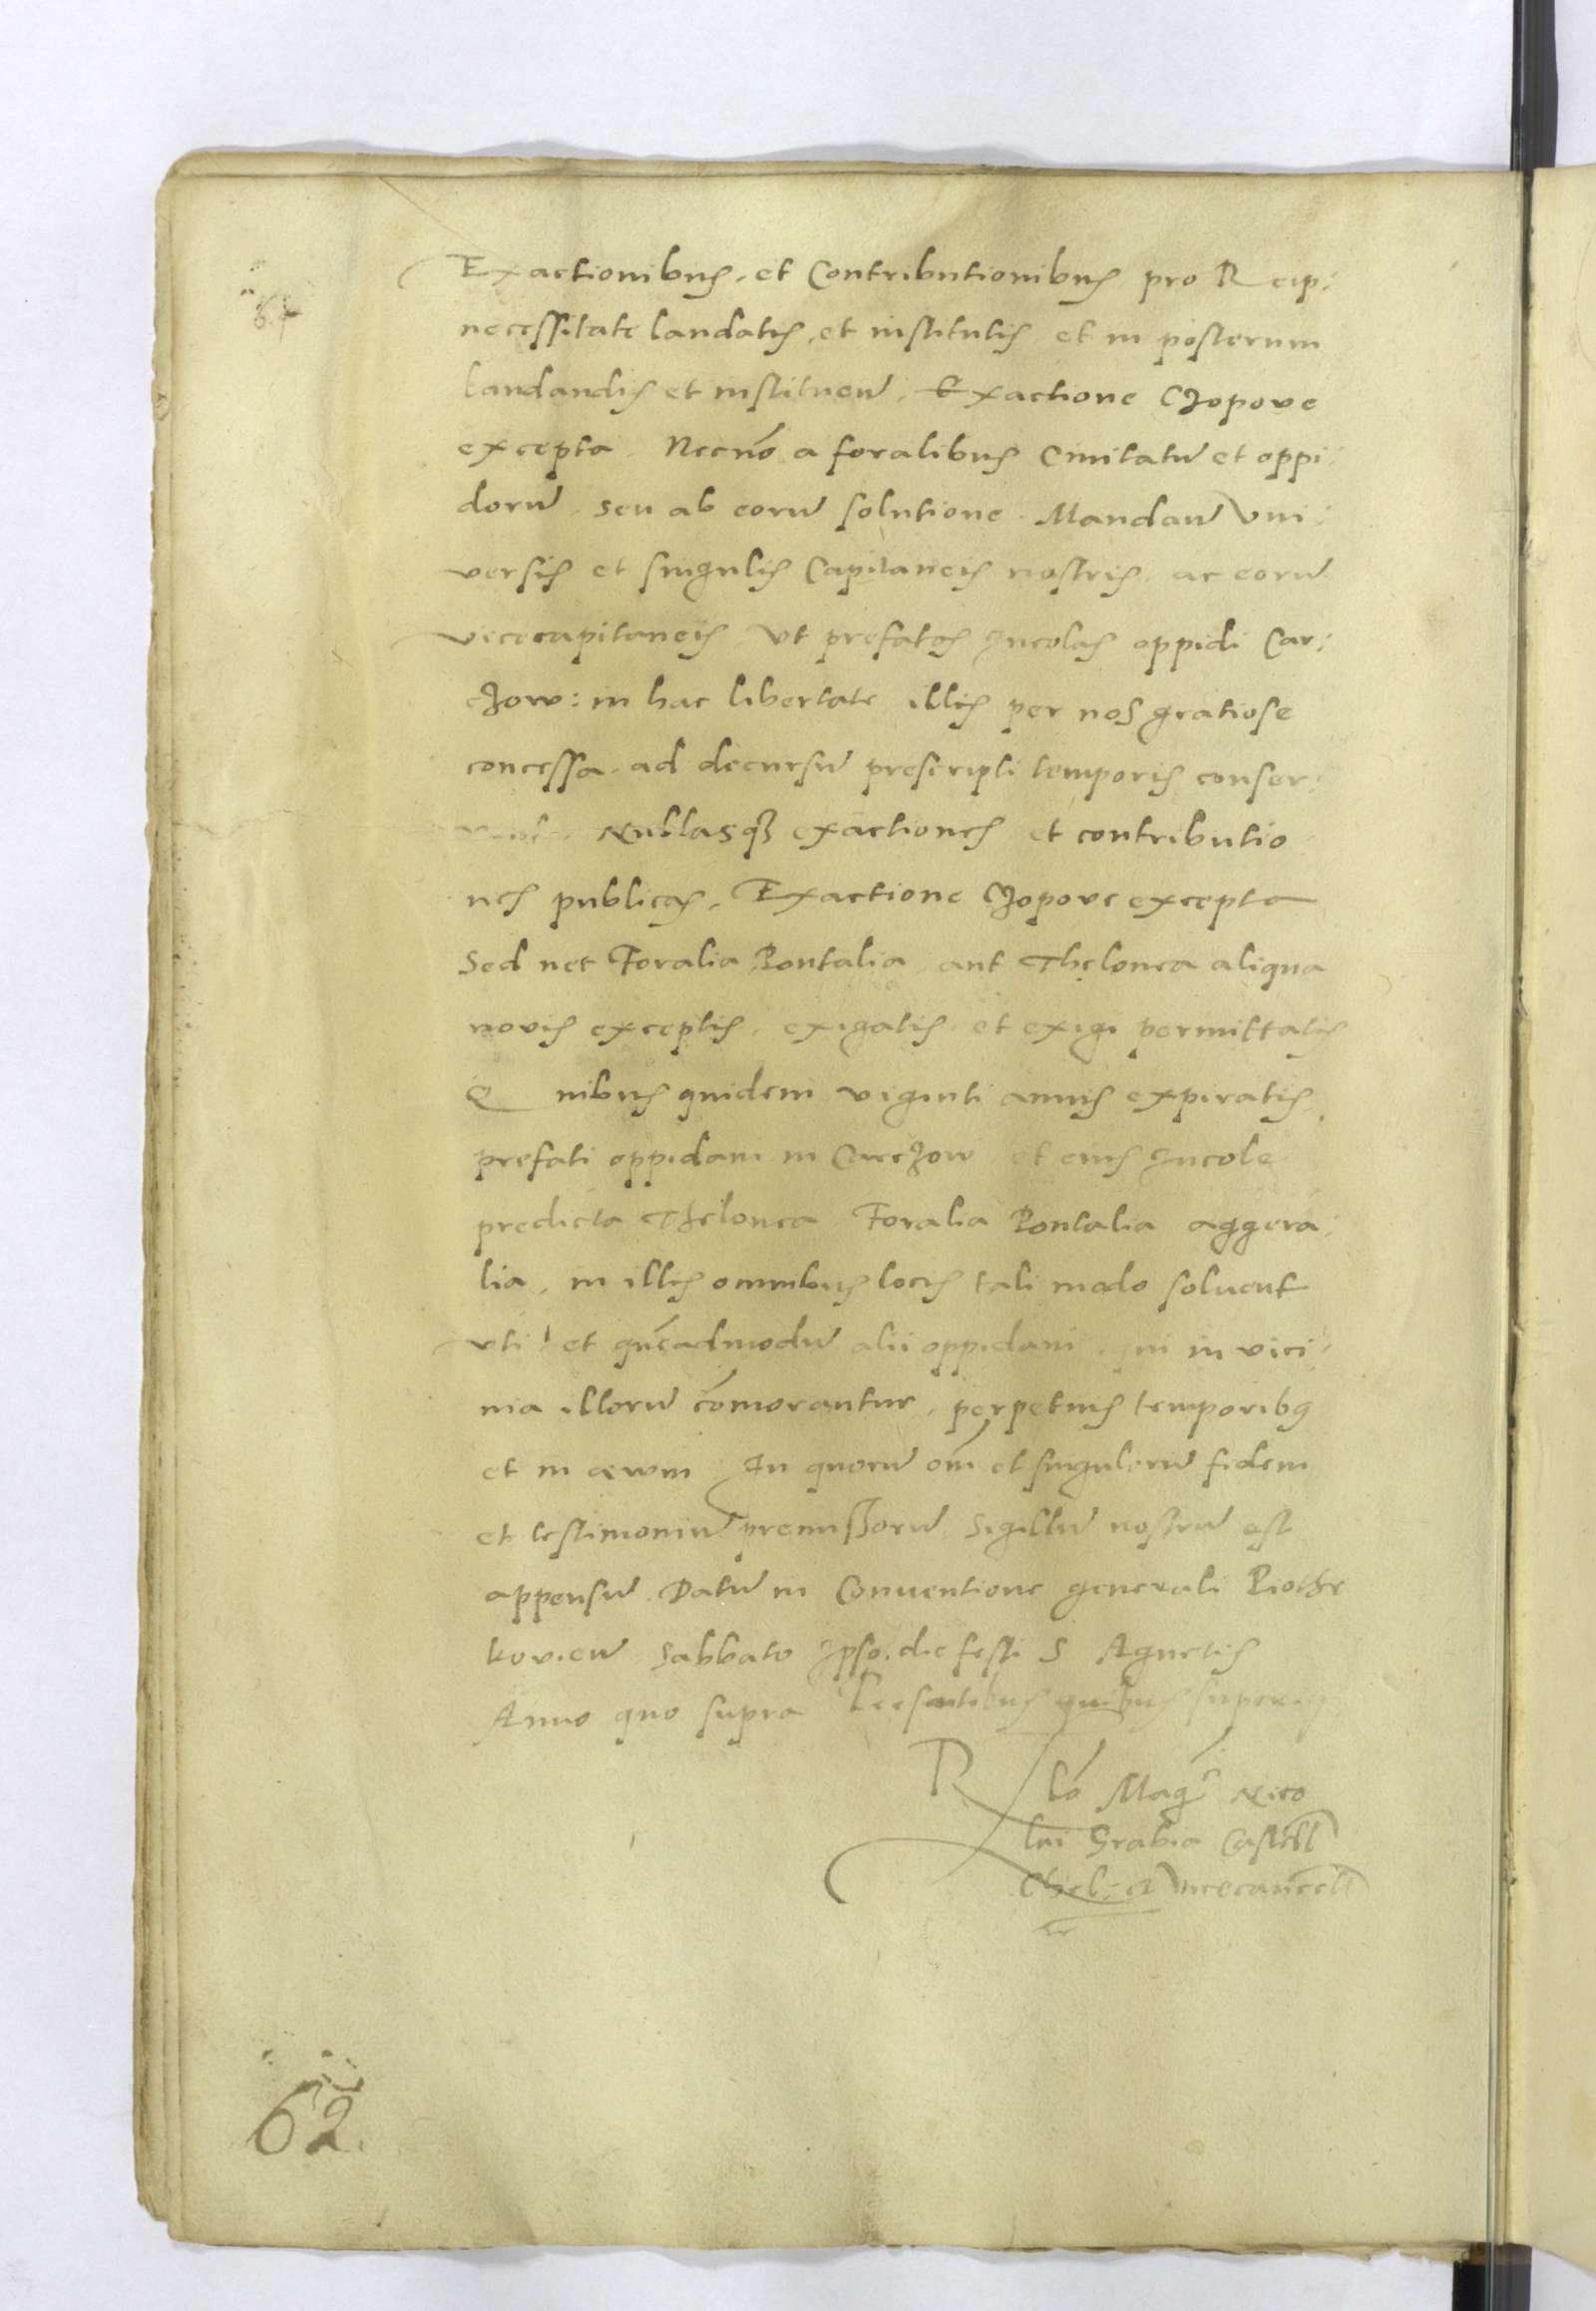 Exactionibus, et Contributionibus pro Reip:
necessitate laudatis, et institutis et in posterum
laudandis et instituen̄, Exactione Czopove
excepta. Necnō a foralibus Civitatū et oppi:
dorū, seu ab eorū solutione. Mandan̄ vni:
versis et singulis Capitaneis nostris, ac eorū
vicecapitaneis, Vt prefatos Incolas oppidi Car:
czow: in hac libertate illis per nos gratiose
concessa, ad decursū prescripti temporis conser:
Nullasqz exactiones et contributio
nes publicas, Exactione Czopove excepta
Sed nec Foralia Pontalia aut Thelonea aliqua
novis exceptis, exigatis et exigi permittatis
Quibus quidem viginti annis expiratis,
prefati oppidani in Carczow et eius Incole
predicta Thelonea Foralia Pontalia aggera:
lia, in illis omnibus locis tali modo solvent
vti et quēadmodū alii oppidani, qui in vici:
nia illorū cōmorantur, perpetuis temporibs
et in aevum In quorū om̄ et singulorū fidem
et testimoniū premissorū Sigillū nostrū est
appensū. Datū in Conventione generali Piothr
kovien̄ Sabbato Ipso die festi S Agnetis
Anno quo supra Presentibus quibus supra
Rlō Mag^ci Nico
lai Grabia Castell
Chel: et vicecancell
62.